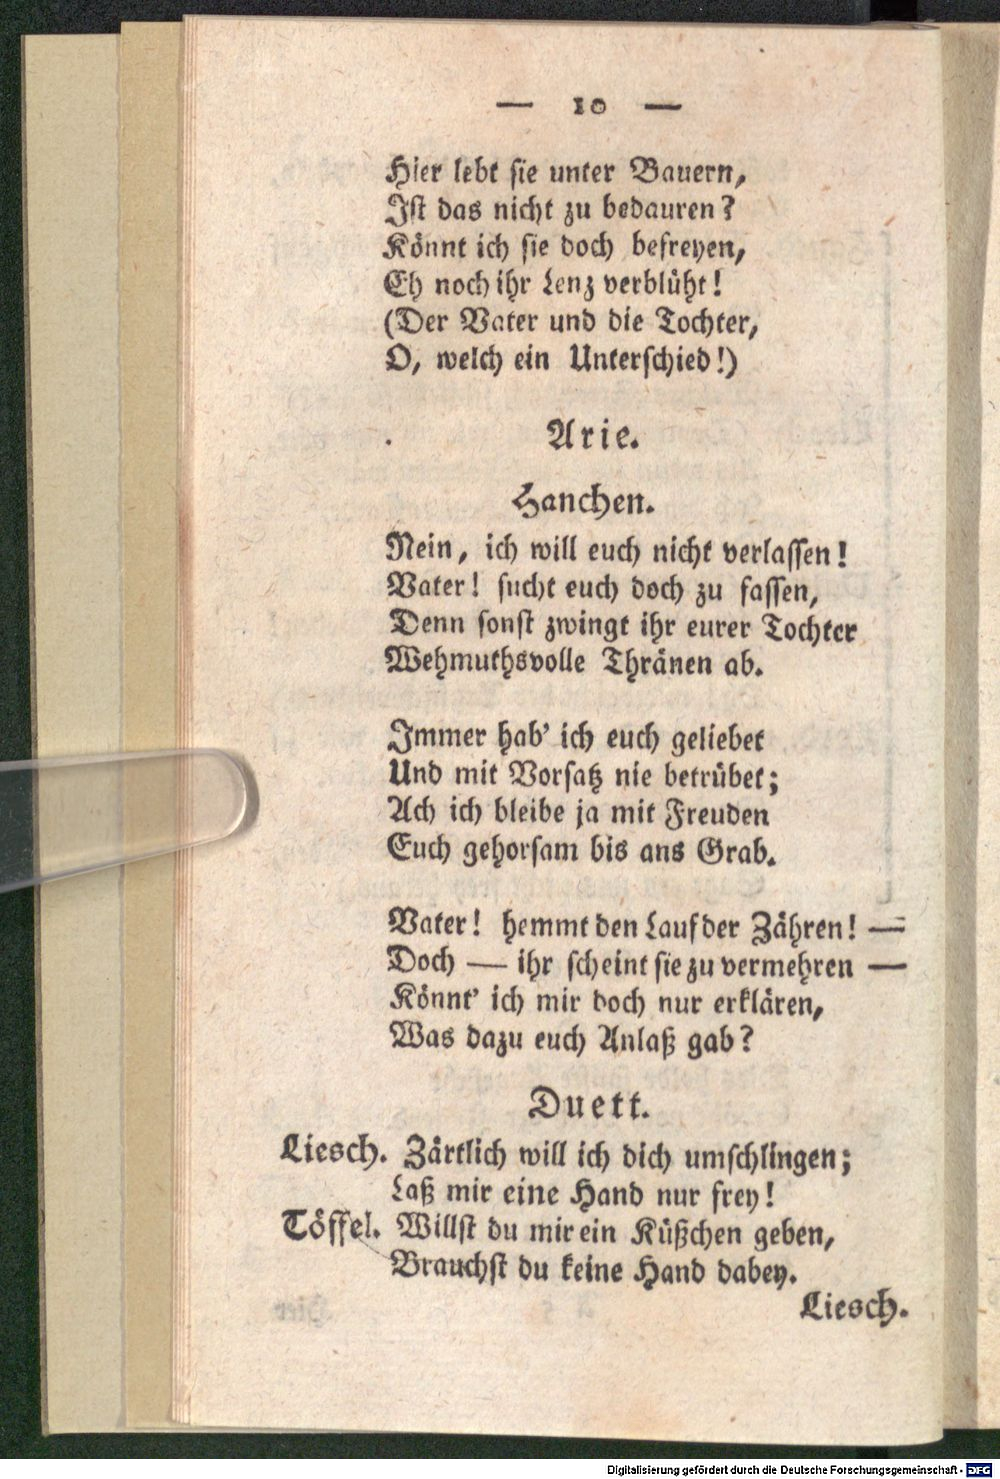 — 10 —
Hier lebt sie unter Bauern,
Ist das nicht zu bedauren?
Könnt ich sie doch befreyen,
Eh noch ihr Lenz verblüht!
(Der Vater und die Tochter,
O, welch ein Unterschied!)
Arie.
Hanchen.
Nein, ich will euch nicht verlassen!
Vater! sucht euch doch zu fassen,
Denn sonst zwingt ihr eurer Tochter
Wehmuthsvolle Thränen ab.
Immer hab' ich euch geliebet
Und mit Vorsatz nie betrübet;
Ach ich bleibe ja mit Freuden
Euch gehorsam bis ans Grab.
Vater! hemmt den Lauf der Zähren! —
Doch — ihr scheint sie zu vermehren —
Könnt' ich mir doch nur erklären,
Was dazu euch Anlaß gab?
Duett.
Liesch. Zärtlich will ich dich umschlingen;
Laß mir eine Hand nur frey!
Töffel. Willst du mir ein Küßchen geben,
Brauchst du keine Hand dabey.
Liesch.
Digitalisierung gefördert durch die Deutsche Forschungsgemeinschaft - DFG